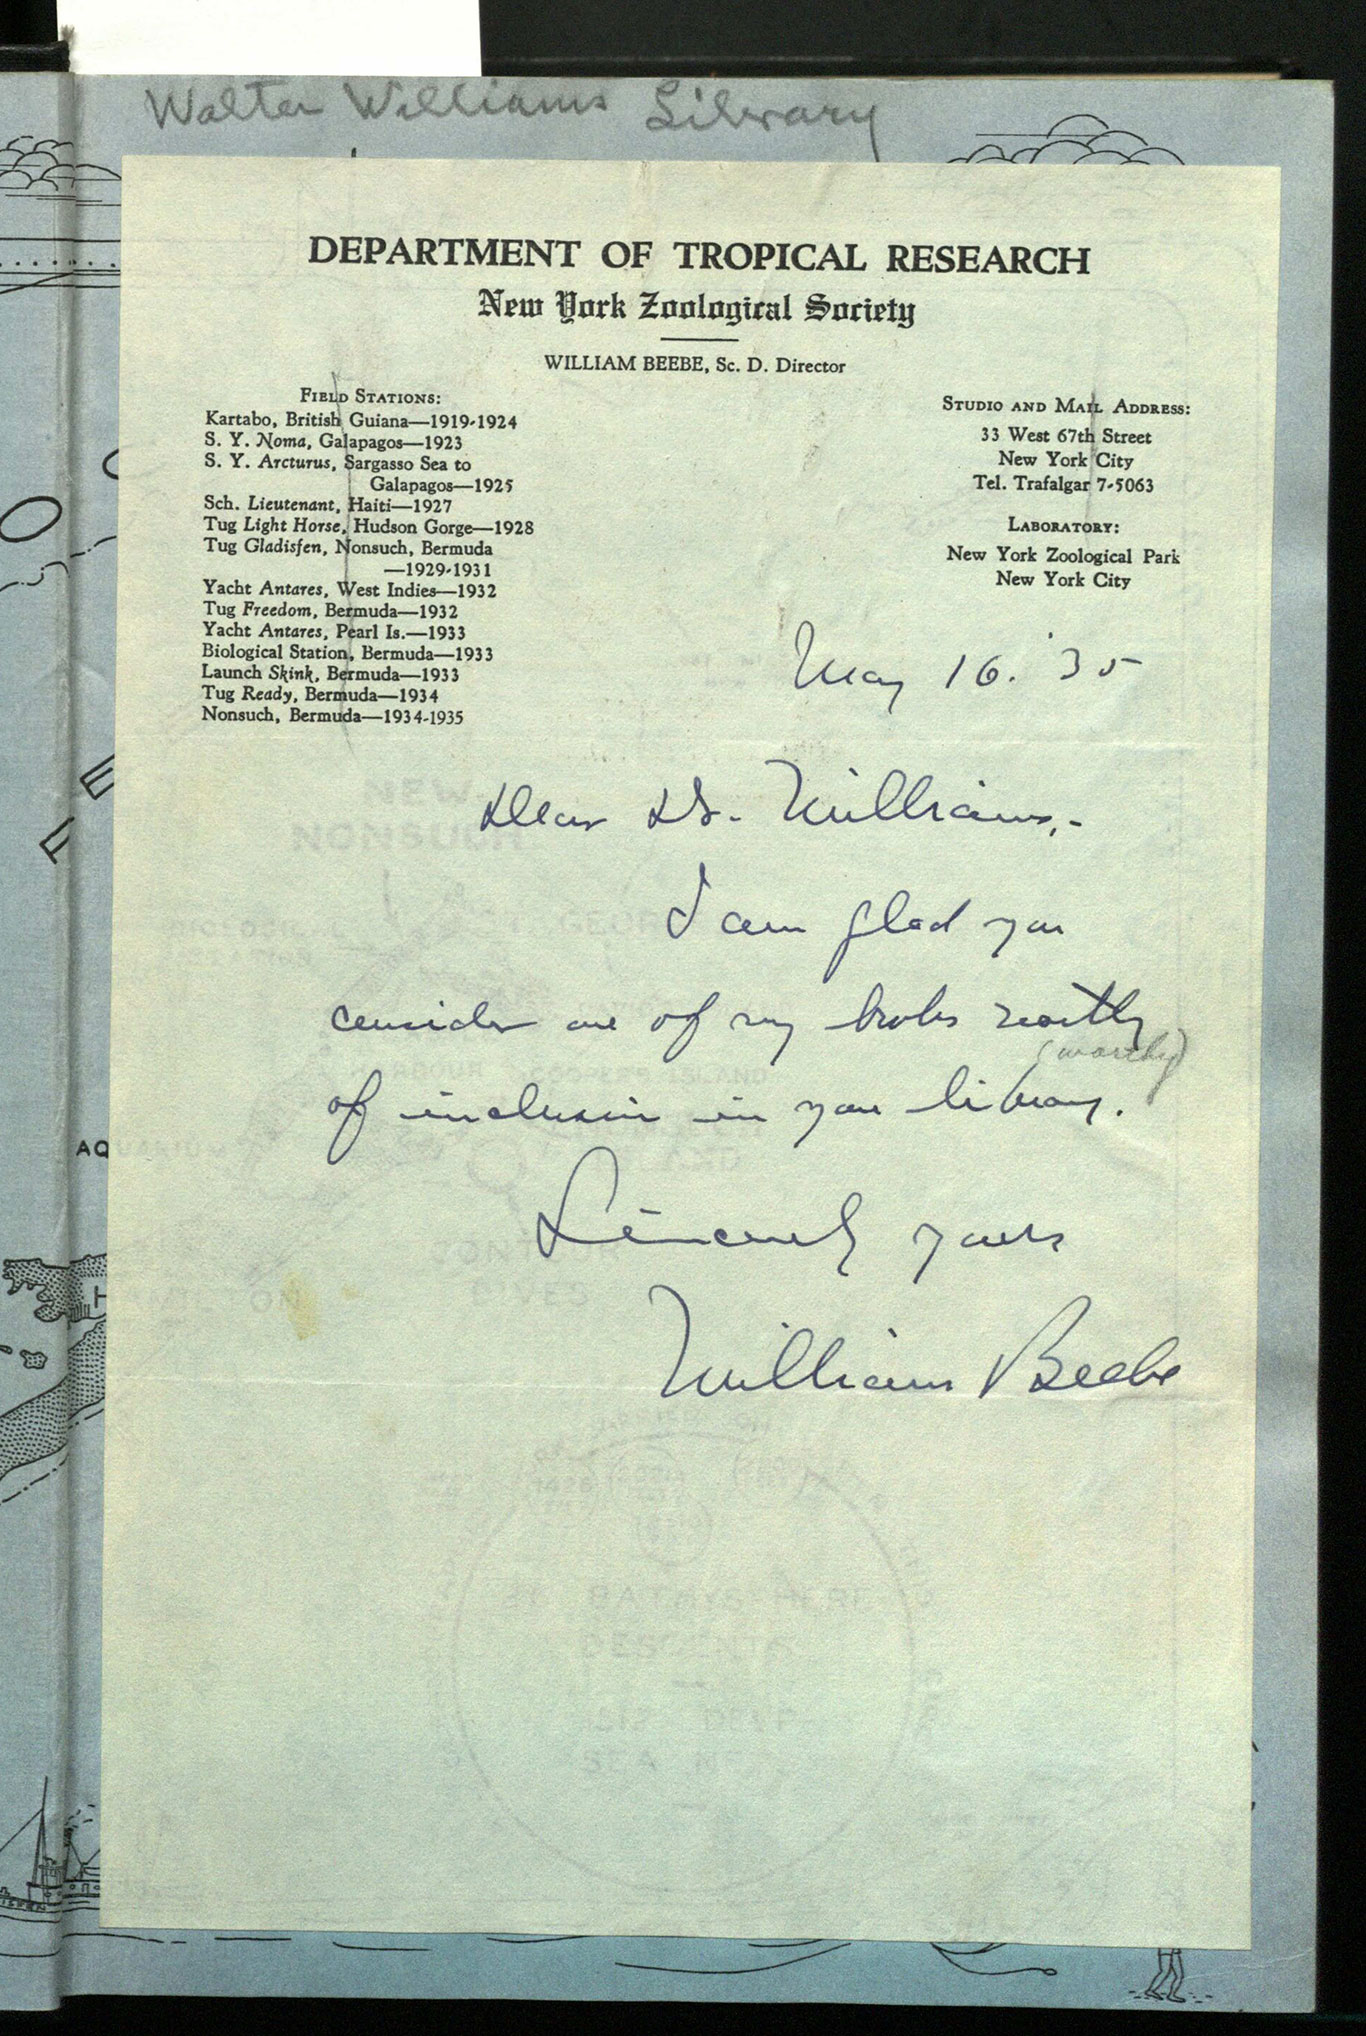 Walter Williams Library
DEPARTMENT OF TROPICAL RESEARCH
New York Zoological Society
WILLIAM BEEBE, Sc. D. Director
FIELD STATIONS:
Kartabo, British Guiana—1919-1924
S. Y. Noma, Galapagos—1923
S. Y. Arcturus, Sargasso Sea to
Galapagos—1925
Sch. Lieutenant, Haiti—1927
Tug Light Horse, Hudson Gorge—1928
Tug Gladisfen, Nonsuch, Bermuda
—1929-1931
Yacht Antares, West Indies—1932
Tug Freedom, Bermuda—1932
Yacht Antares, Pearl Is.—1933
Biological Station, Bermuda—1933
Launch Skink, Bermuda—1933
Tug Ready, Bermuda—1934
Nonsuch, Bermuda—1934-1935
STUDIO AND MAIL ADDRESS:
33 West 67th Street
New York City
Tel. Trafalgar 7-5063
LABORATORY:
New York Zoological Park
New York City
May 16. '35
Dear Dr. Williams,-
I am glad you
consider one of my books worthy
(worthy)
of inclusion in your library.
Sincerely yours
William Beebe
NEW
NONSUCH
COOPERS ISLAND
AQUARIUM
HAMILTON
DIVES
BATHYSPHERE
DESCENTS